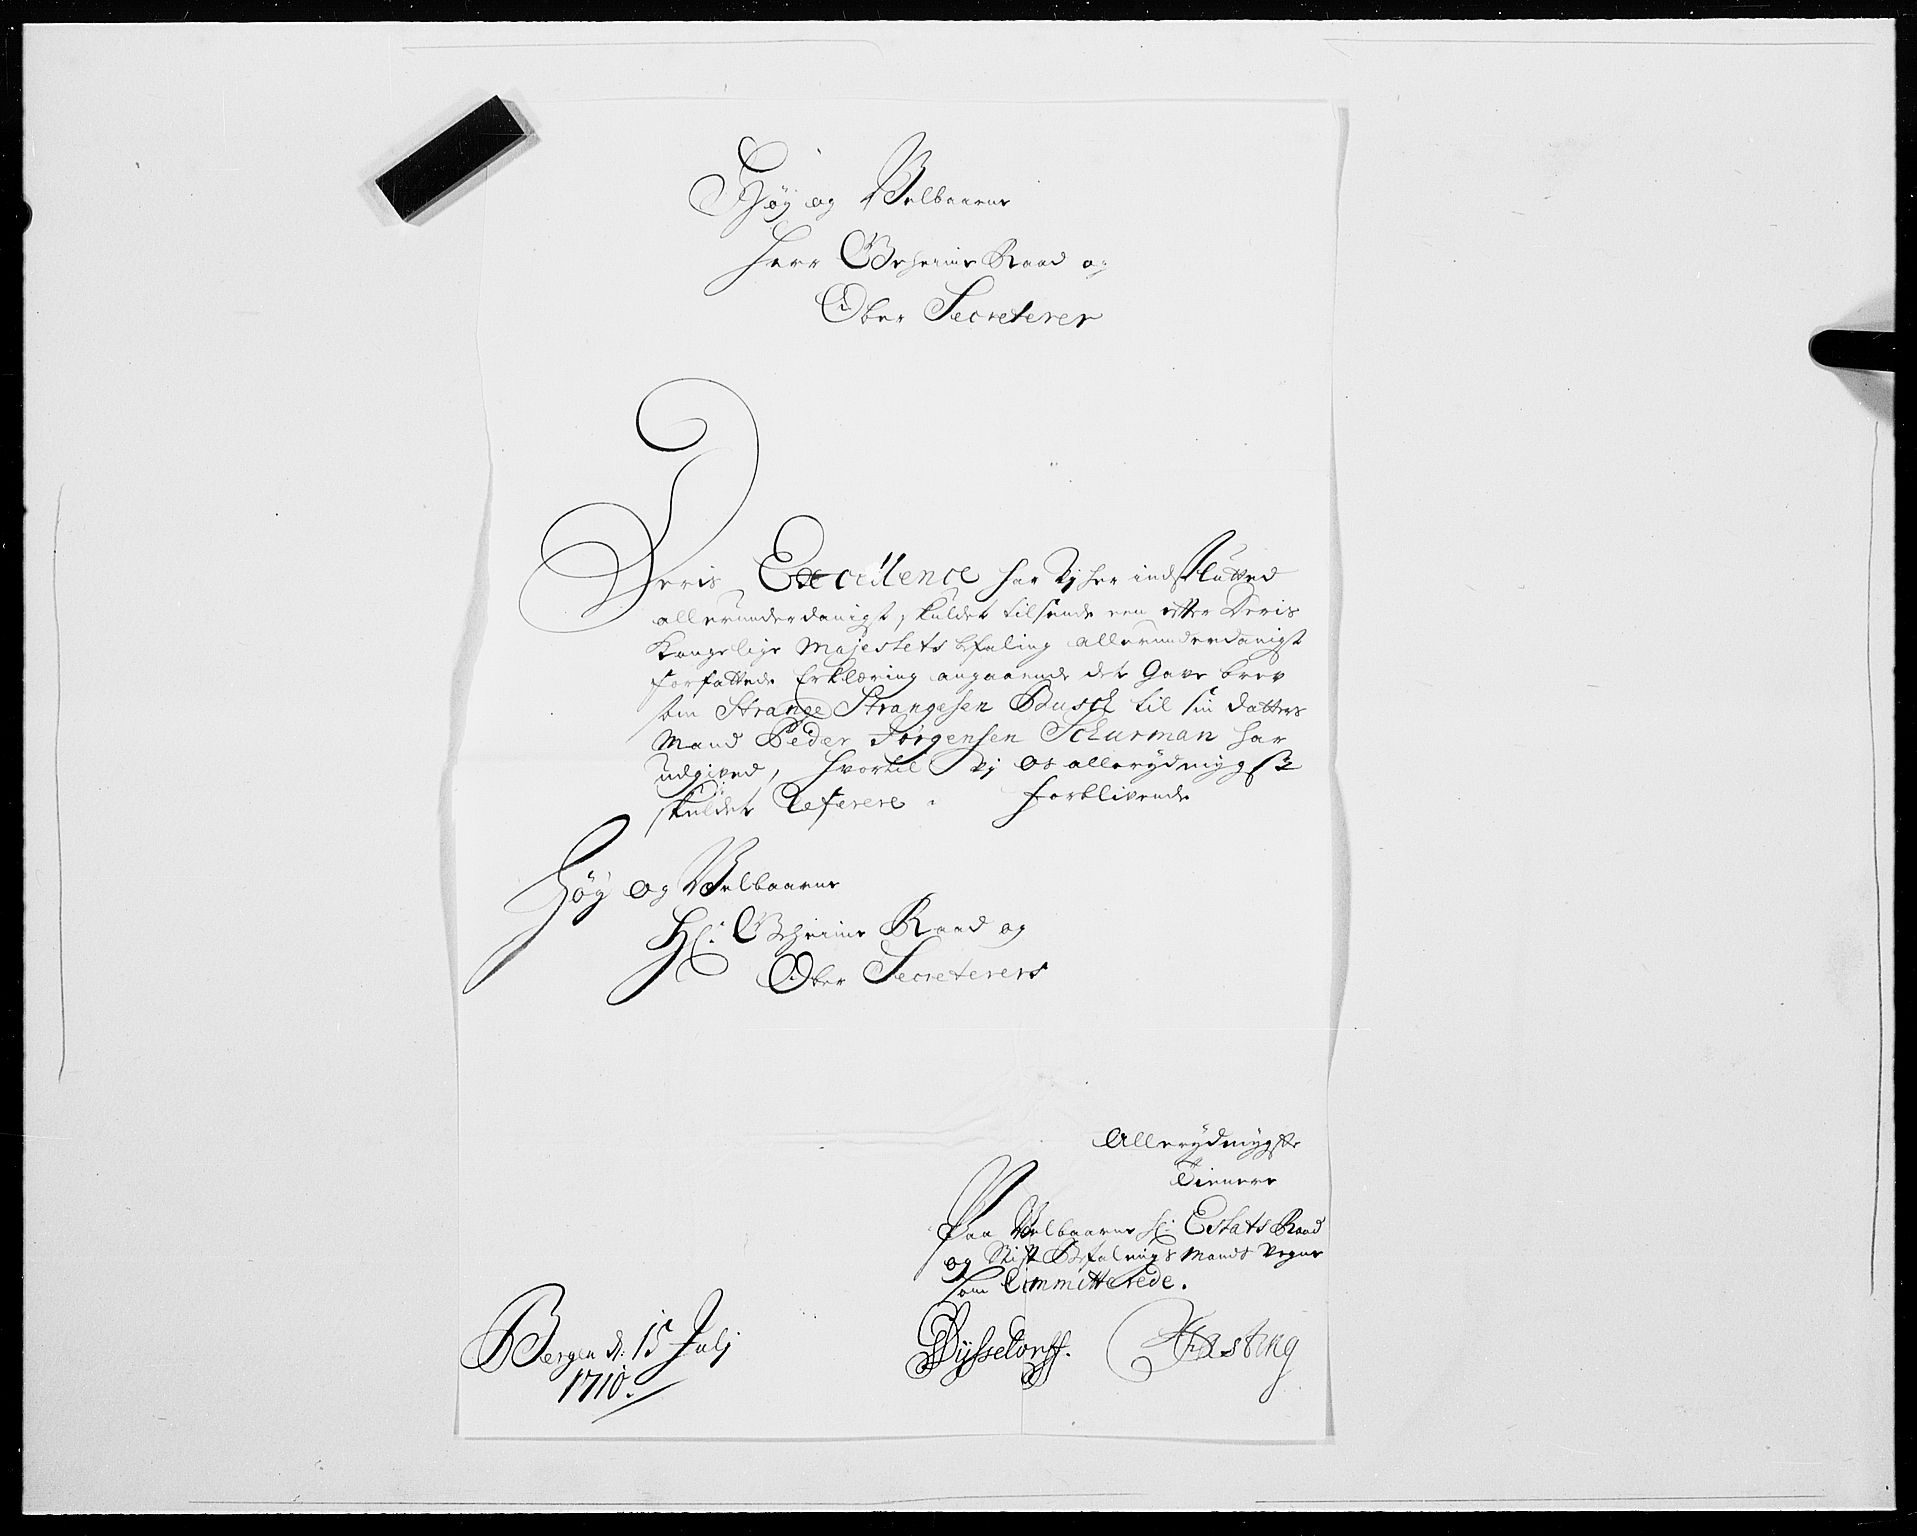 Høy og Velbaarne
Herr Geheime Raad og
Ober Secreterer
Deris Excellence har Vj her indslutted
allerunderdanigst, skuldet tilsende een effter Deris
Kongelige Majestets befaling allerunderdanigst
forfattede Erklæring angaaende det Gave brev
som Strange Strangesen Busch til sin datters
Mand Peder Jørgensen Schurman har
udgived, hvortil Vj os allerydmygst
skuldet Referere. forblivende
Høy og Velbaarne
Hr: Geheime Raad og
Ober Secreterers
Allerydmygste
Tienere
Paa Velbaarne Hr: Estats Raad
og Stift Befalnings Mands Vegne
som Committerede.
Bergen d: 15 Julj
1710.